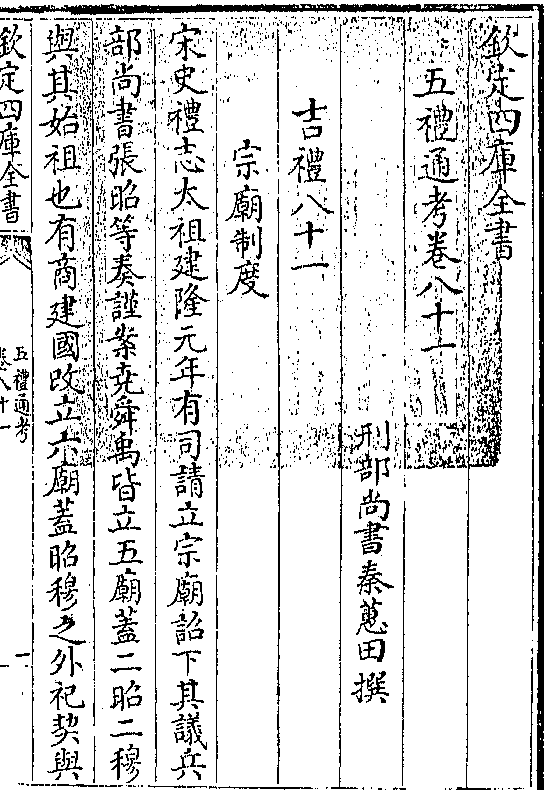 欽定四庫全書
五禮通考卷八十一
刑部尚書秦蕙田撰
吉禮八十一
宗廟制度
宋史禮志太祖建隆元年有司請立宗廟詔下其議兵
部尚書張昭等奏謹案堯舜禹皆立五廟蓋二昭二穆
與其始祖也有商建國改立六廟蓋昭穆之外祀契與
欽定四庫全書
五禮通考
卷八十一
一